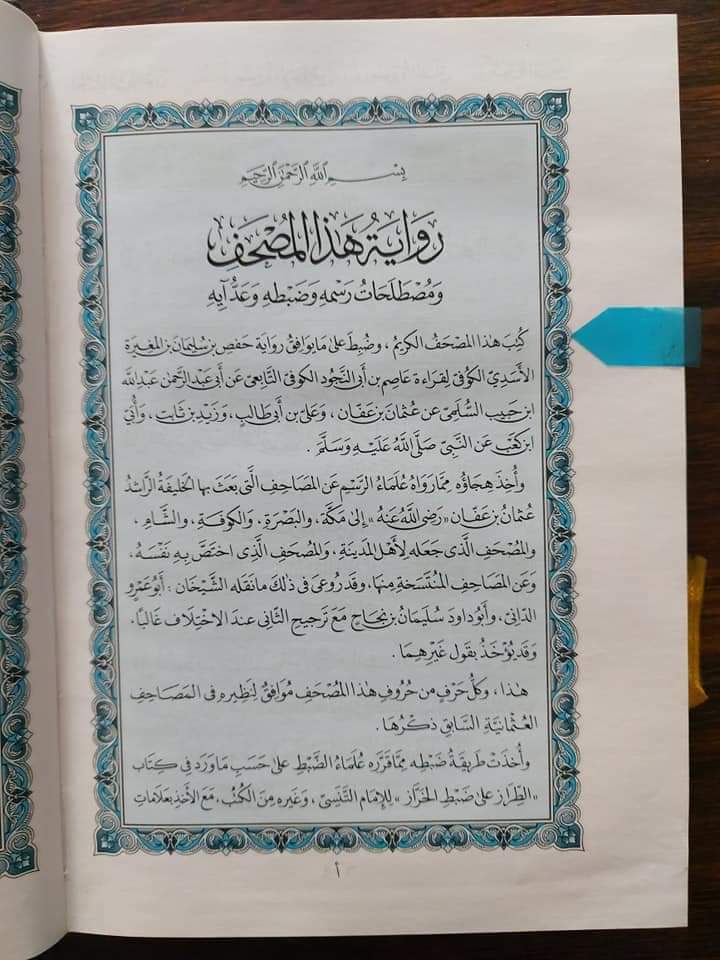 بِسْمِ اللَّهِ الرَّحْمَٰنِ الرَّحِيمِ
رِوَايَةُ هَٰذَا المُصْحَفِ
وَمُصْطَلَحَاتُ رَسْمِهِ وَضَبْطِهِ وَعَدُّ آيِهِ
كُتِبَ هَٰذَا المُصْحَفُ الكَرِيمُ ، وَضُبِطَ عَلَىٰ مَا يُوَافِقُ رِوَايَةَ حَفْصِ بْنِ سُلَيْمَانَ بْنِ المُغِيرَةِ
الأَسَدِيِّ الكُوفِيِّ لِقِرَاءَةِ عَاصِمِ بْنِ أَبِي النَّجُودِ الكُوفِيِّ التَّابِعِيِّ عَنْ أَبِي عَبْدِ الرَّحْمَٰنِ عَبْدِ اللَّهِ
ابْنِ حَبِيبٍ السُّلَمِيِّ عَنْ عُثْمَانَ بْنِ عَفَّانَ ، وَعَلِيِّ بْنِ أَبِي طَالِبٍ ، وَزَيْدِ بْنِ ثَابِتٍ ، وَأُبَيِّ
ابْنِ كَعْبٍ عَنِ النَّبِيِّ صَلَّى اللَّهُ عَلَيْهِ وَسَلَّمَ .
وَأُخِذَ هِجَاؤُهُ مِمَّا رَوَاهُ عُلَمَاءُ الرَّسْمِ عَنِ المَصَاحِفِ الَّتِي بَعَثَ بِهَا الخَلِيفَةُ الرَّاشِدُ
عُثْمَانُ بْنُ عَفَّانَ «رَضِيَ اللَّهُ عَنْهُ» إِلَىٰ مَكَّةَ ، وَالبَصْرَةِ ، وَالكُوفَةِ ، وَالشَّامِ ،
وَالمُصْحَفِ الَّذِي جَعَلَهُ لِأَهْلِ المَدِينَةِ ، وَالمُصْحَفِ الَّذِي اخْتَصَّ بِهِ نَفْسَهُ ،
وَعَنِ المَصَاحِفِ المُنْتَسَخَةِ مِنْهَا ، وَقَدْ رُوعِيَ فِي ذَٰلِكَ مَا نَقَلَهُ الشَّيْخَانِ : أَبُو عَمْرٍو
الدَّانِيُّ ، وَأَبُو دَاوُدَ سُلَيْمَانُ بْنُ نَجَاحٍ مَعَ تَرْجِيحِ الثَّانِي عِنْدَ الِاخْتِلَافِ غَالِبًا .
وَقَدْ يُؤْخَذُ بِقَوْلِ غَيْرِهِمَا .
هَٰذَا ، وَكُلُّ حَرْفٍ مِنْ حُرُوفِ هَٰذَا المُصْحَفِ مُوَافِقٌ لِنَظِيرِهِ فِي المَصَاحِفِ
العُثْمَانِيَّةِ السَّابِقِ ذِكْرُهَا .
وَأُخِذَتْ طَرِيقَةُ ضَبْطِهِ مِمَّا قَرَّرَهُ عُلَمَاءُ الضَّبْطِ عَلَىٰ حَسَبِ مَا وَرَدَ فِي كِتَابِ
«الطِّرَازِ عَلَىٰ ضَبْطِ الخَرَّازِ» لِلْإِمَامِ التَّنَسِيِّ ، وَغَيْرِهِ مِنَ الكُتُبِ ، مَعَ الأَخْذِ بِعَلَامَاتِ
أ